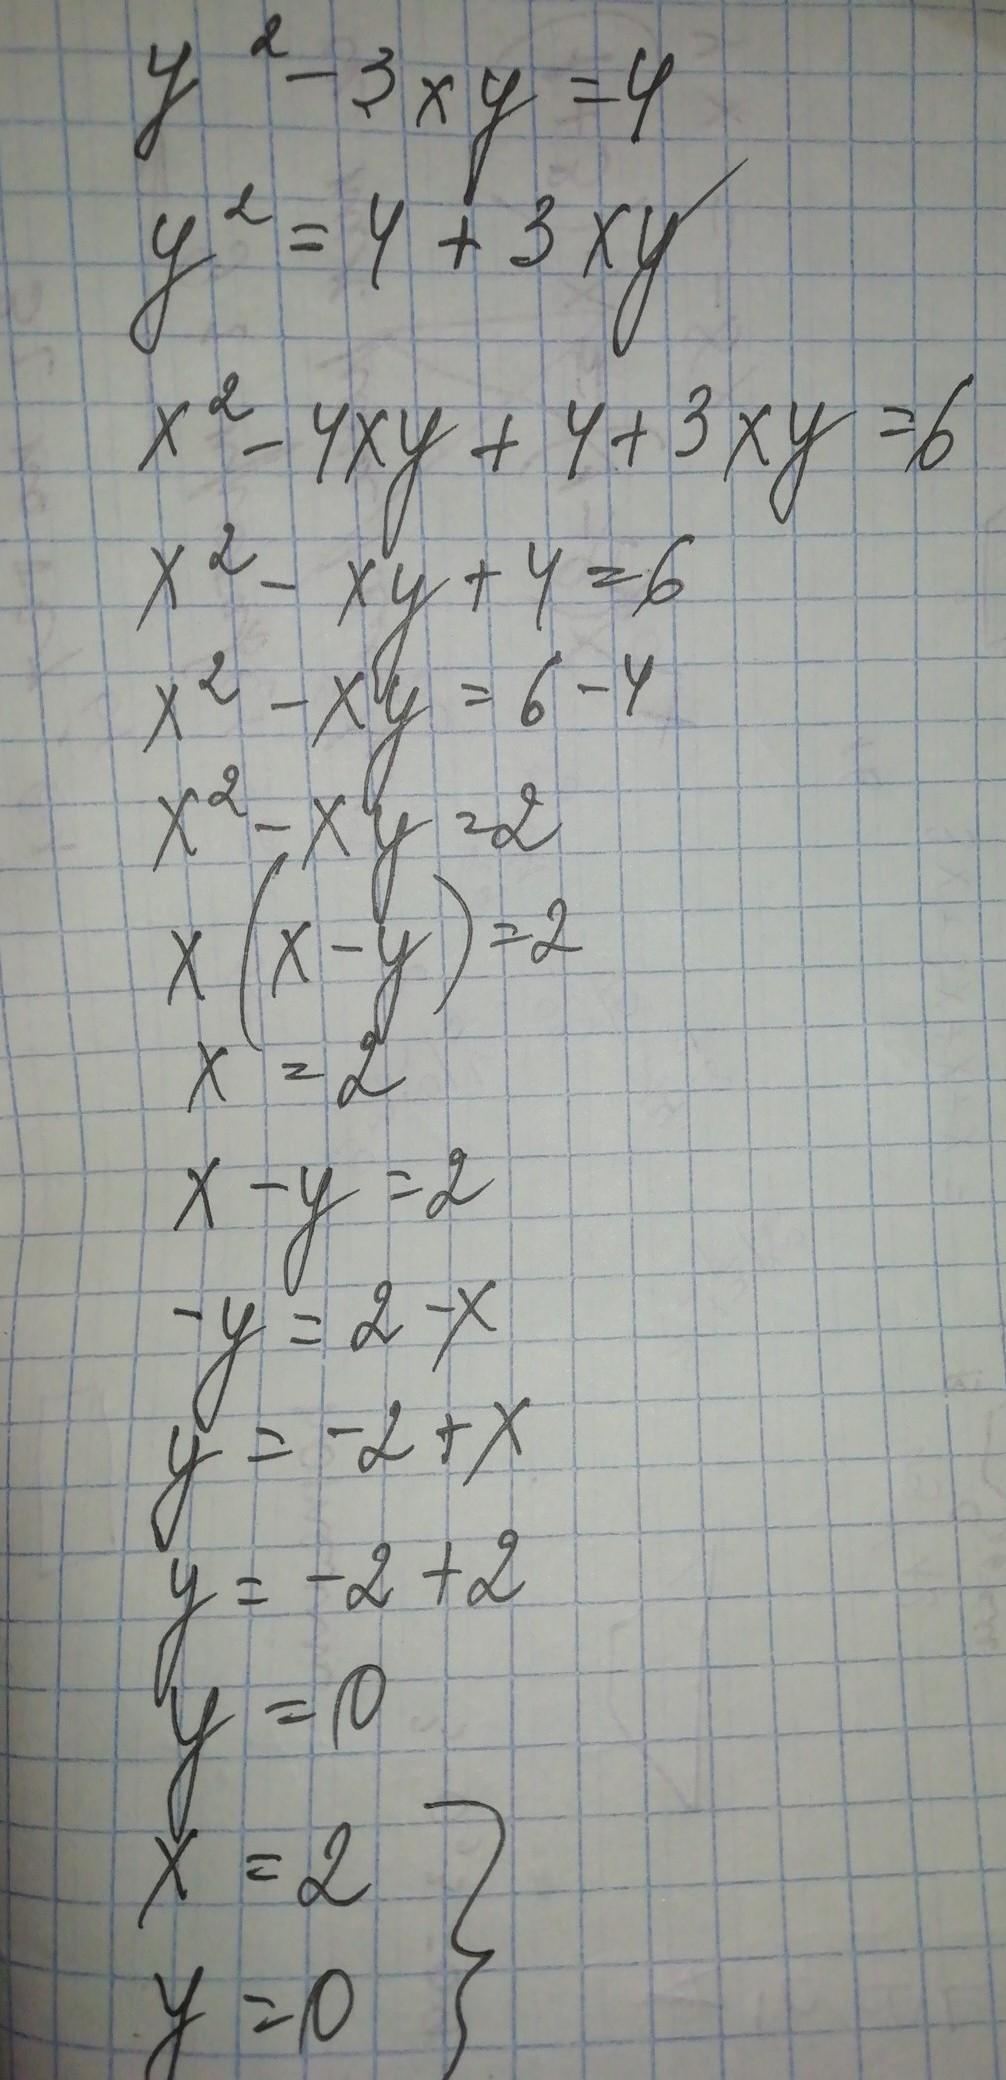 y² - 3xy = 4
y² = 4 + 3xy
x² - 4xy + 4 + 3xy = 6
x² - xy + 4 = 6
x² - xy = 6 - 4
x² - xy = 2
x (x - y) = 2
x = 2
x - y = 2
-y = 2 - x
y = -2 + x
y = -2 + 2
y = 0
x = 2 }
y = 0